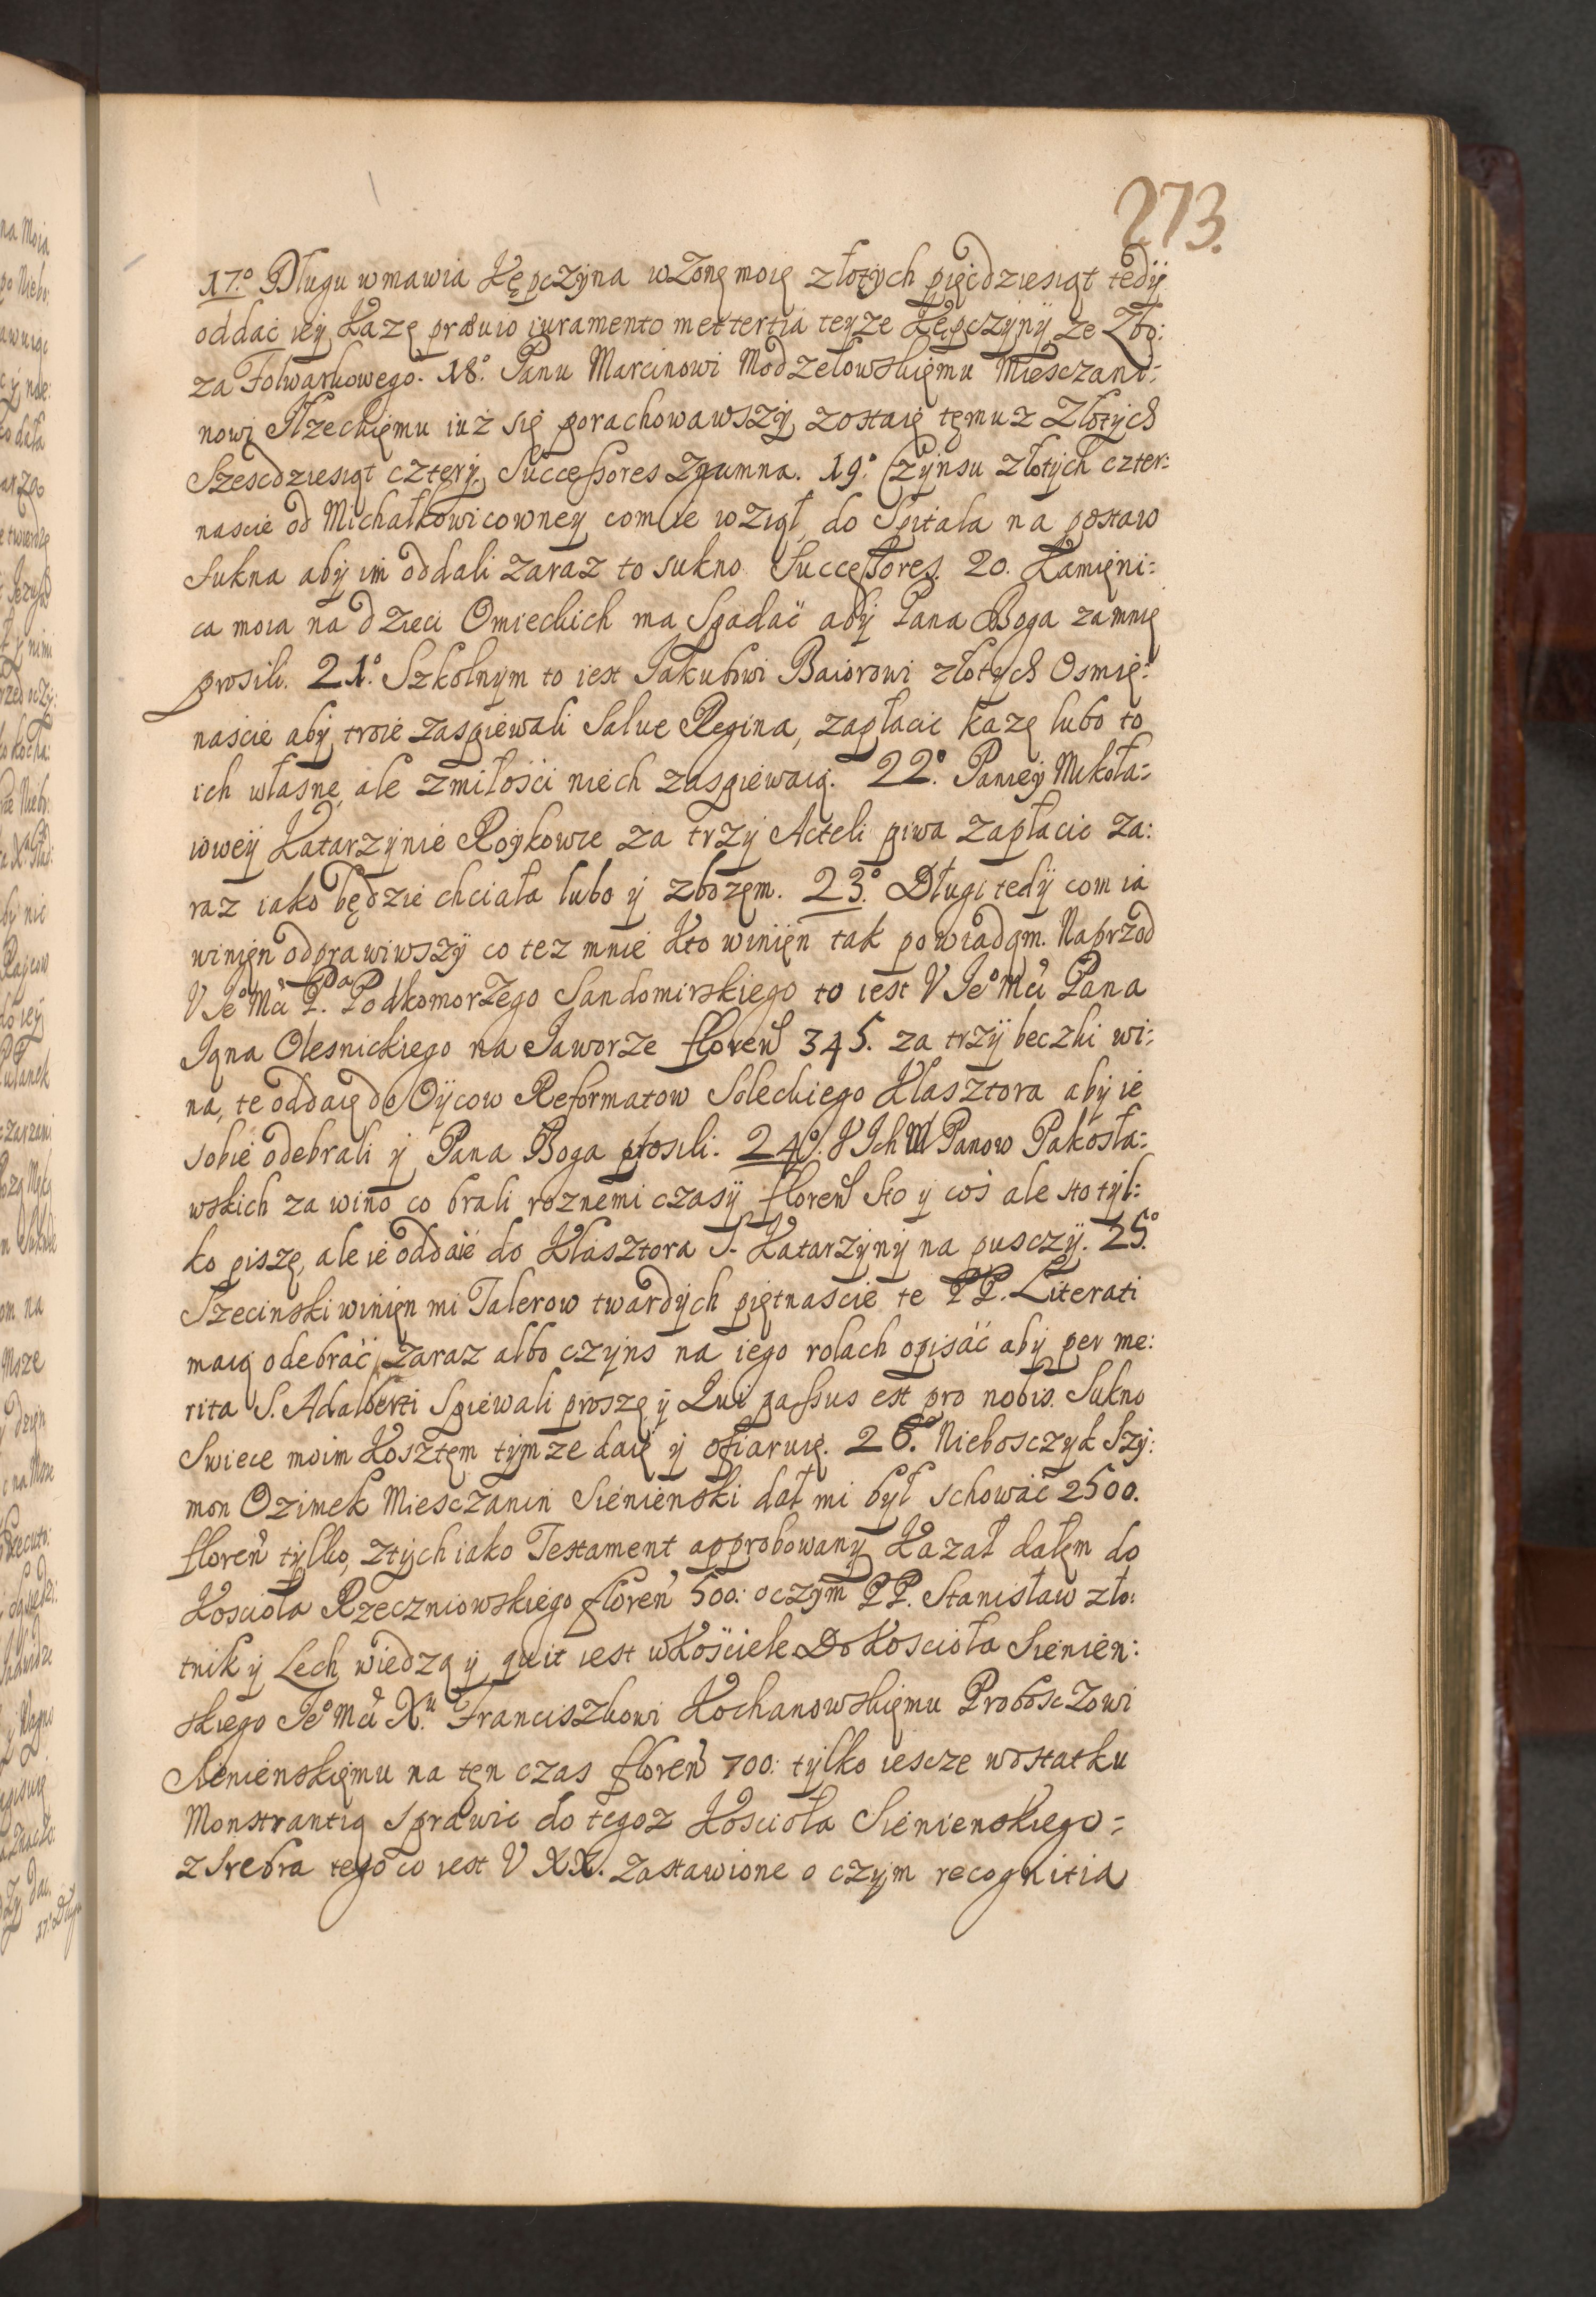 273.
17.° Długu wmawia Kępczyna w Zonę moię złotych pięcdziesiąt tedÿ
oddać ieÿ Kazę prævio iuramento mettertia teyze Kępczynÿ ze Zbo:
za Folwarkowego. 18.° Panu Marcinowi Modzelowskięmu Miesczani:
nowi Iłzeckięmu iuż się porachowawszÿ zostaię tęmuz Złotych
Szescdziesiąt czterÿ, Successores Zgumna. 19.° Czÿnsu złotych czter:
nascie od Michałkowicowney com ie wziął, do Spitala na postaw
Sukna abÿ im oddali zaraz to sukno Successores. 20. Kamięni:
ca moia na dzieci Omieckich ma Spadać abÿ Pana Boga zamnię
prosili. 21.° Szkolnym to iest Iakubowi Baiorowi złotych Osmię:
naście abÿ troie zaspiewali Salve Regina, zapłacic kazę lubo to
ich własne, ale zmiłości niech zaspiewaią. 22.° Paniey Mikoła:
iowey Katarzynie Roykowie za trzÿ Acteli piwa zapłacic za:
raz iako będzie chciała lubo ÿ zbozęm. 23.° Długi tedÿ com ia
winięn odprawiwszÿ co tez mnie kto winięn tak powiadąm. Naprzod
V Ie°Mći P. Pa Podkomorzego Sandomirskiego to iest V Ie°Mći Pana
Iąna Olesnickiego na Iaworze floren 345. za trzÿ beczki wi:
na, te oddaię do Oÿcow Reformatow Soleckiego Klasztora abÿ ie
sobie odebrali ÿ Pana Boga prosili. 24°. V Ich M Panow Pakosła:
wskich za wino co brali roznemi czasÿ floren Sto ÿ coś ale sto tÿl:
ko piszę, ale ie oddaię do Klasztora S. Katarzÿnÿ na pusczÿ. 25.°
Szecinski winięn mi Talerow twardÿch piętnascie te PP. Literati
maią odebrać zaraz albo czÿns na iego rolach opisáć abÿ per me:
rita S. Adalberti Spiewali proszę ÿ Qui passus est pro nobis. Sukno
Swiece moim Kosztęm tÿmze daię ÿ ofiaruię. 26.° Niebosczyk Szÿ:
mon Ozimek Miesczanin Sienienski dał mi był schowáć 2500.
floren tÿlko, ztÿch iako Testament approbowanÿ Kazał dałęm do
Kosciola Rzeczniowskiego floren 500. oczÿm PP. Stanisław zło:
tnik ÿ Lech wiedzą ÿ quit iest w Kościele Do Kosciola Sienien:
skiego Ie°Mći X.u Franciszkowi Kochanowskięmu Probosczowi
Sienienskięmu na tęn czas floren 700. tÿlko iescze wostatku
Monstrantią Sprawic do tegoz Kosciola Sienienskiego:
z Srebra tego co iest V XX. Zastawione o czÿm recognitia